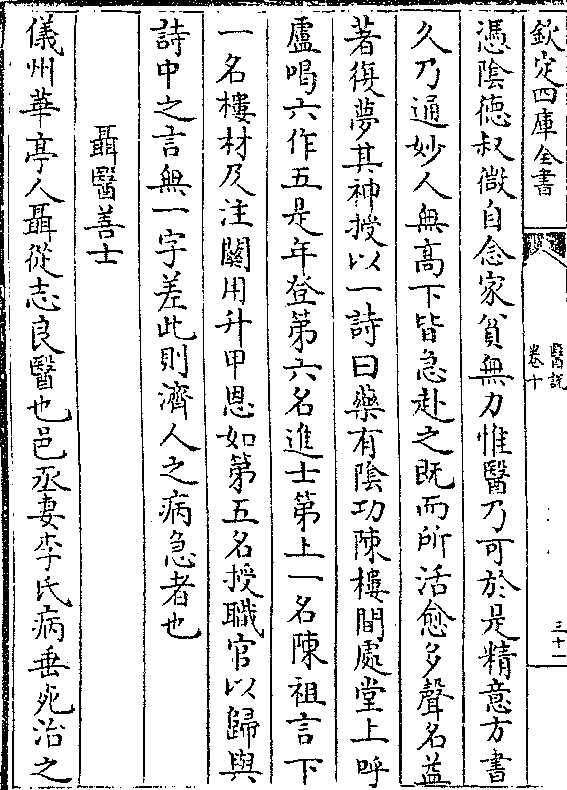 欽定四庫全書
醫說
卷十
三十一
憑陰徳叔微自念家貧無力惟醫乃可於是精意方書
久乃通妙人無髙下皆急赴之既而所活愈多聲名益
著復夢其神授以一詩曰藥有陰功陳樓間處堂上呼
盧喝六作五是年登第六名進士第上一名陳祖言下
一名樓材及注闕用升甲恩如第五名授職官以歸與
詩中之言無一字差此則濟人之病急者也
聶醫善士
儀州華亭人聶從志良醫也邑丞妻李氏病垂死治之